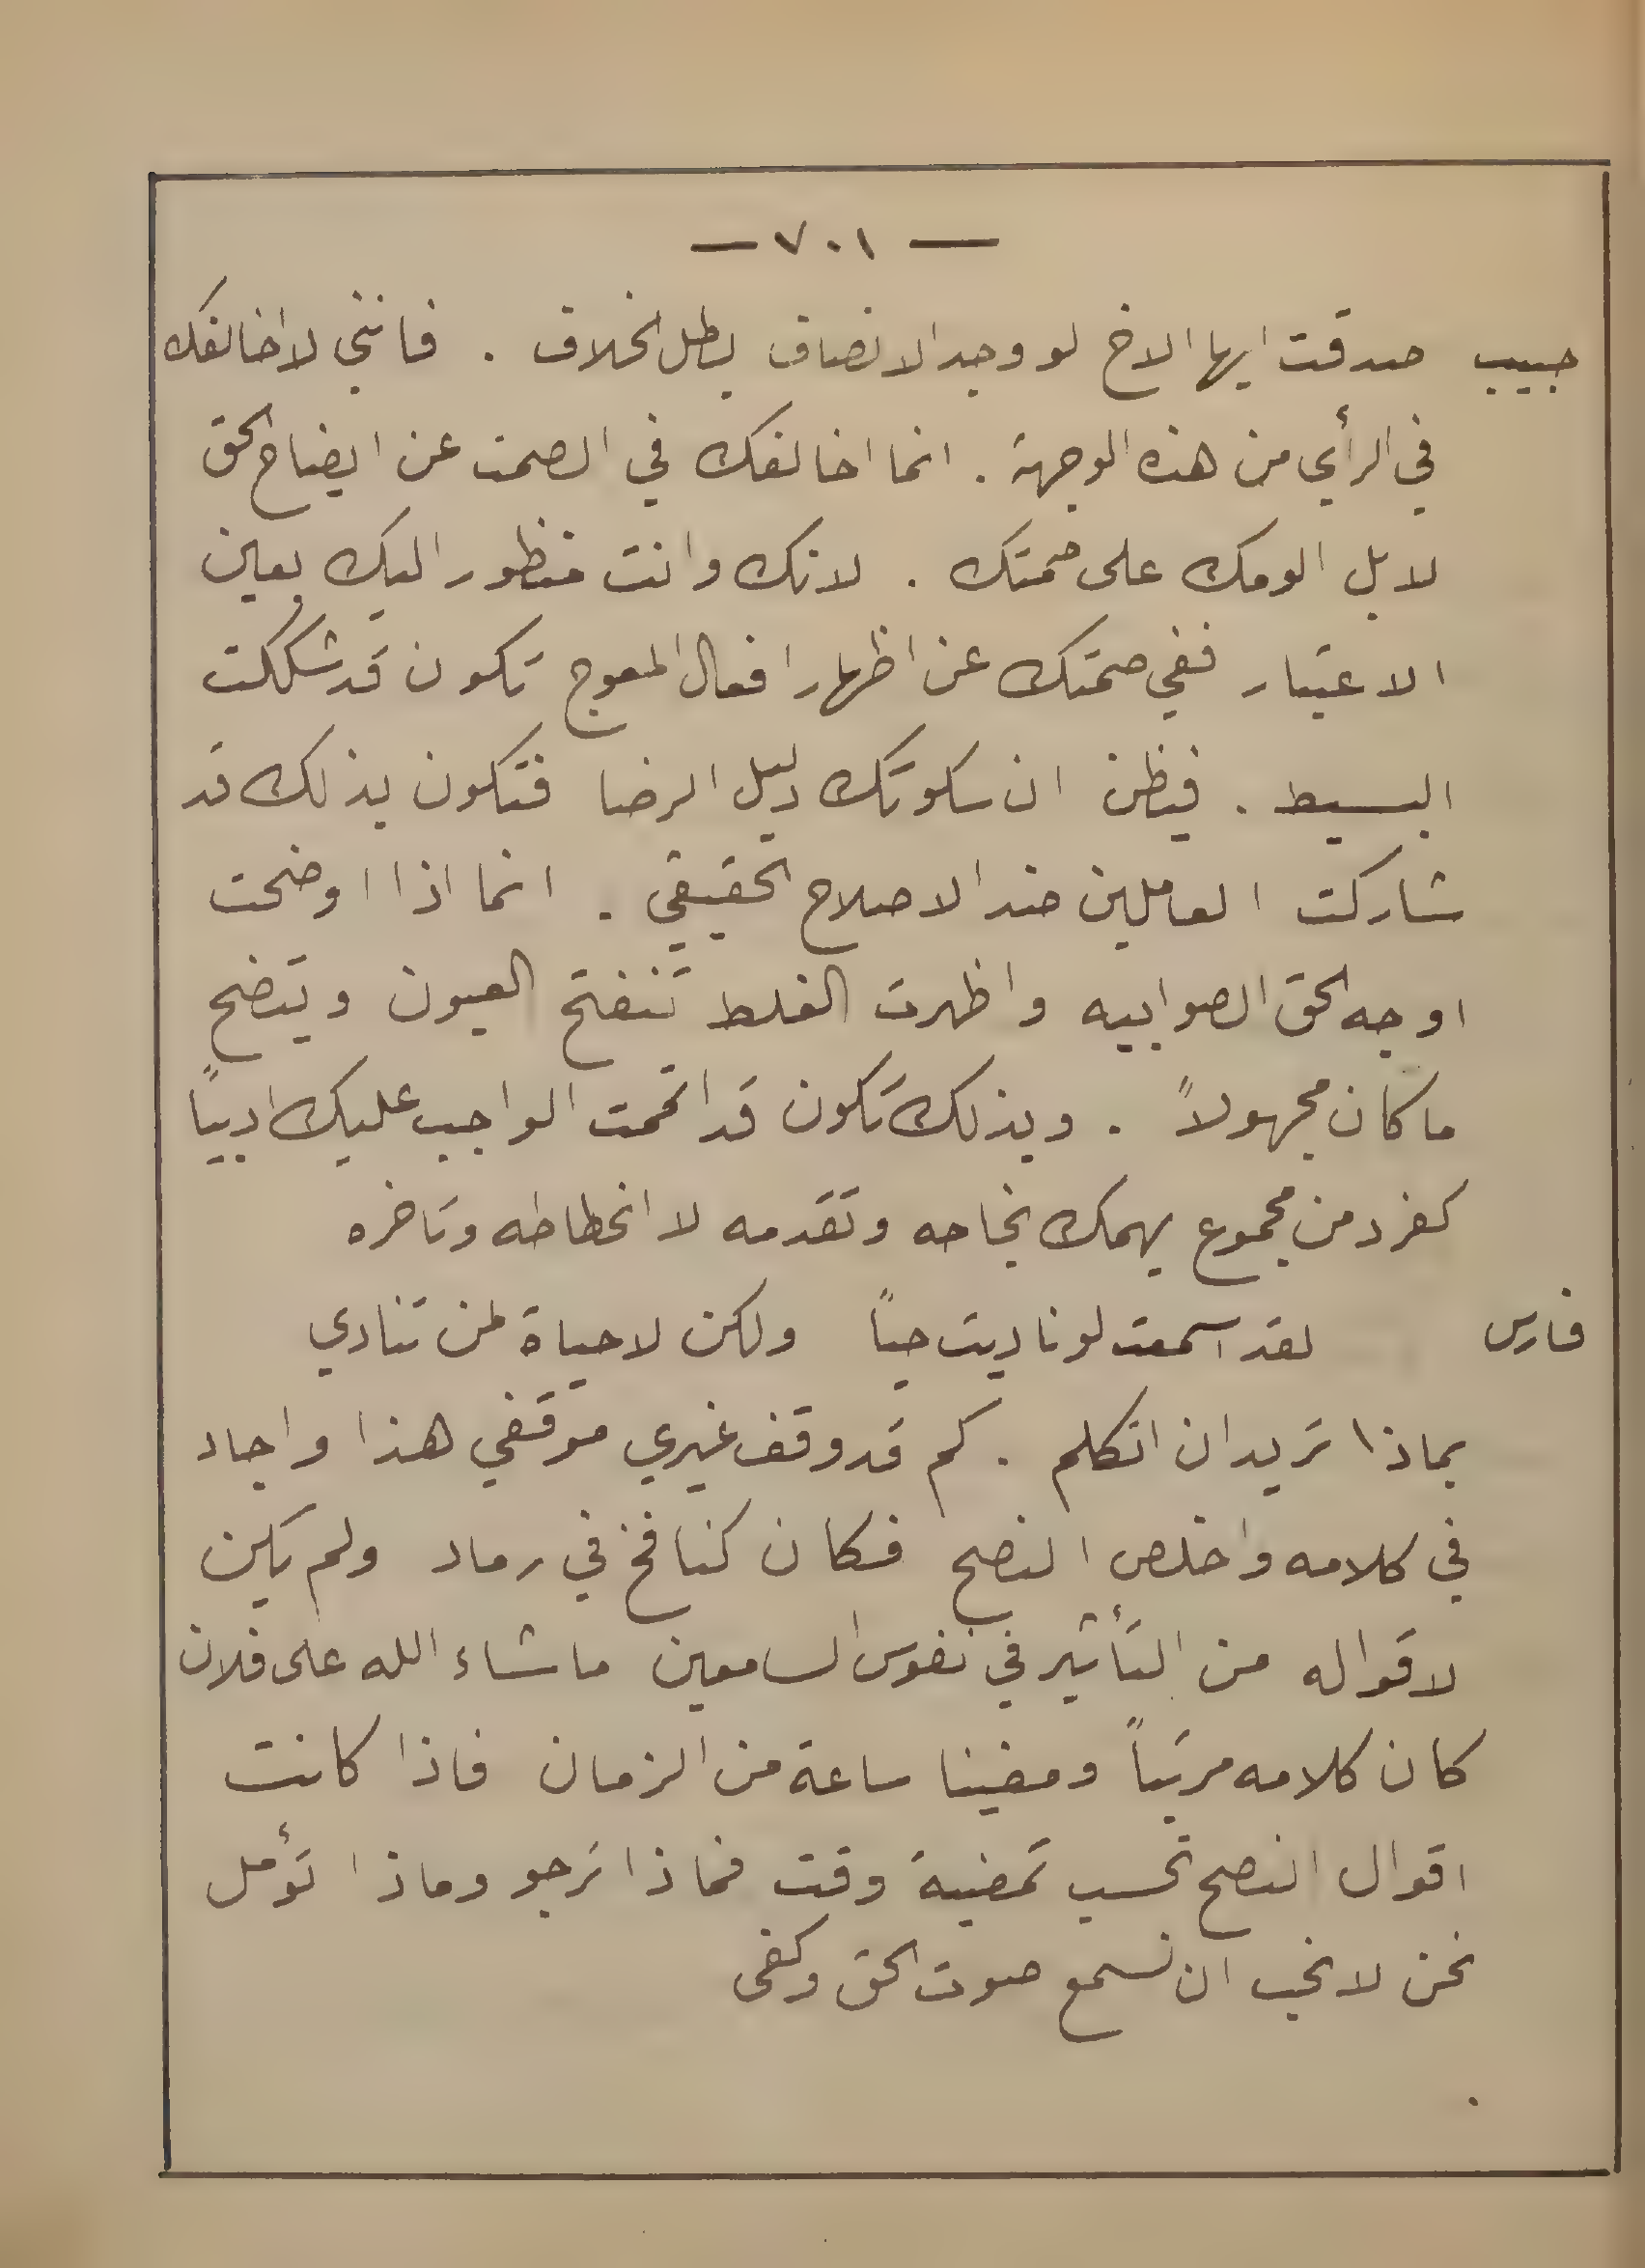 — ٧٠١ —
حبيب صدقت ايها الاخ لو وجد الانصاف لبطل الخلاف . فانني لا اخالفك
في الرأي من هذه الوجهة . انما اخالفك في الصمت عن ايضاح الحق
لا بل الومك على صمتك . لانك وانت منظور اليك بعين
الاعتبار ففي صمتك عن اظهار افعال المعوج تكون قد شككت
البسيط . فيظن ان سكوتك دليل الرضا فتكون بذلك قد
شاركت العاملين ضد الاصلاح الحقيقي . انما اذا اوضحت
اوجه الحق الصوابيه واظهرت الغلط تنفتح العيون ويتضح
ما كان مجهولاً . وبذلك تكون قد اتممت الواجب عليك ادبياً
كفرد من مجموع يهمك نجاحه وتقدمه لا انحطاطه وتاخره
فارس لقد اسمعت لو ناديت حياً ولكن لا حياة لمن تنادي
بماذا تريد ان اتكلم . كم قد وقف غيري موقفي هذا واجاد
في كلامه واخلص النصح فكان كنافخ في رماد ولم يكن
لاقواله من التأثير في نفوس السامعين ما شاء الله على فلان
كان كلامه مرتباً ومضينا ساعة من الزمان فاذا كانت
اقوال النصح تحسب تمضية وقت فماذا ترجو وماذا تؤمل
نحن لا نحب ان نسمع صوت الحق وكفى